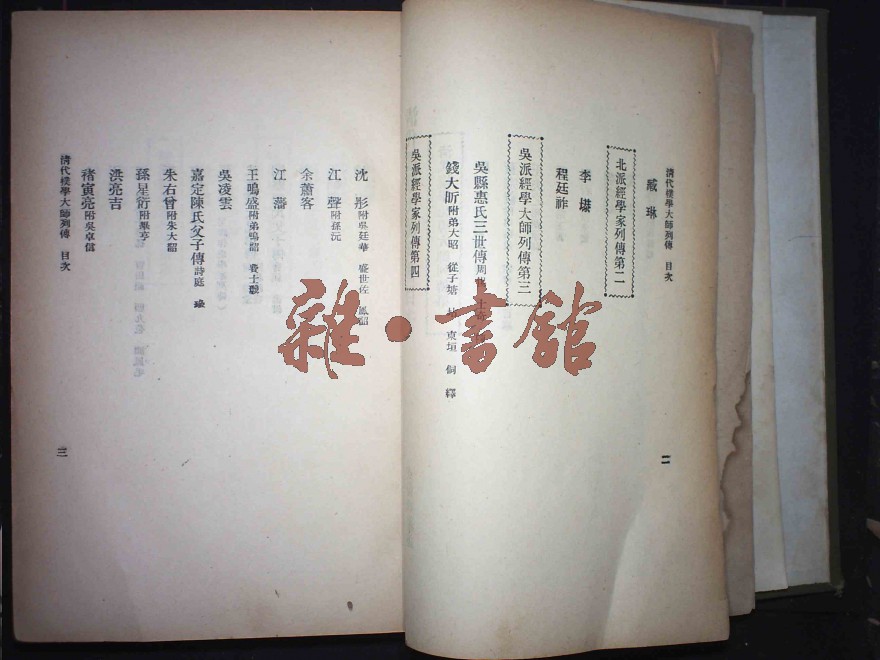 清代樸學大師列傳 目次
臧琳
北派經學家列傳第二
李塨
程廷祚
吳派經學大師列傳第三
吳縣惠氏三世傳周惕 士
錢大昕附弟大昭 從子塘 東垣 侗 繹
吳派經學家列傳第四
二
沈彤附吳廷華 盛世佐
江聲附孫沅
余蕭客
江藩
王鳴盛附弟鳴韶 費士璣
吳凌雲
嘉定陳氏父子傳詩庭 瑑
朱右曾附朱大韶
孫星衍附畢亨
洪亮吉
褚寅亮附吳卓信
清代樸學大師列傳 目次
三
雜·書館